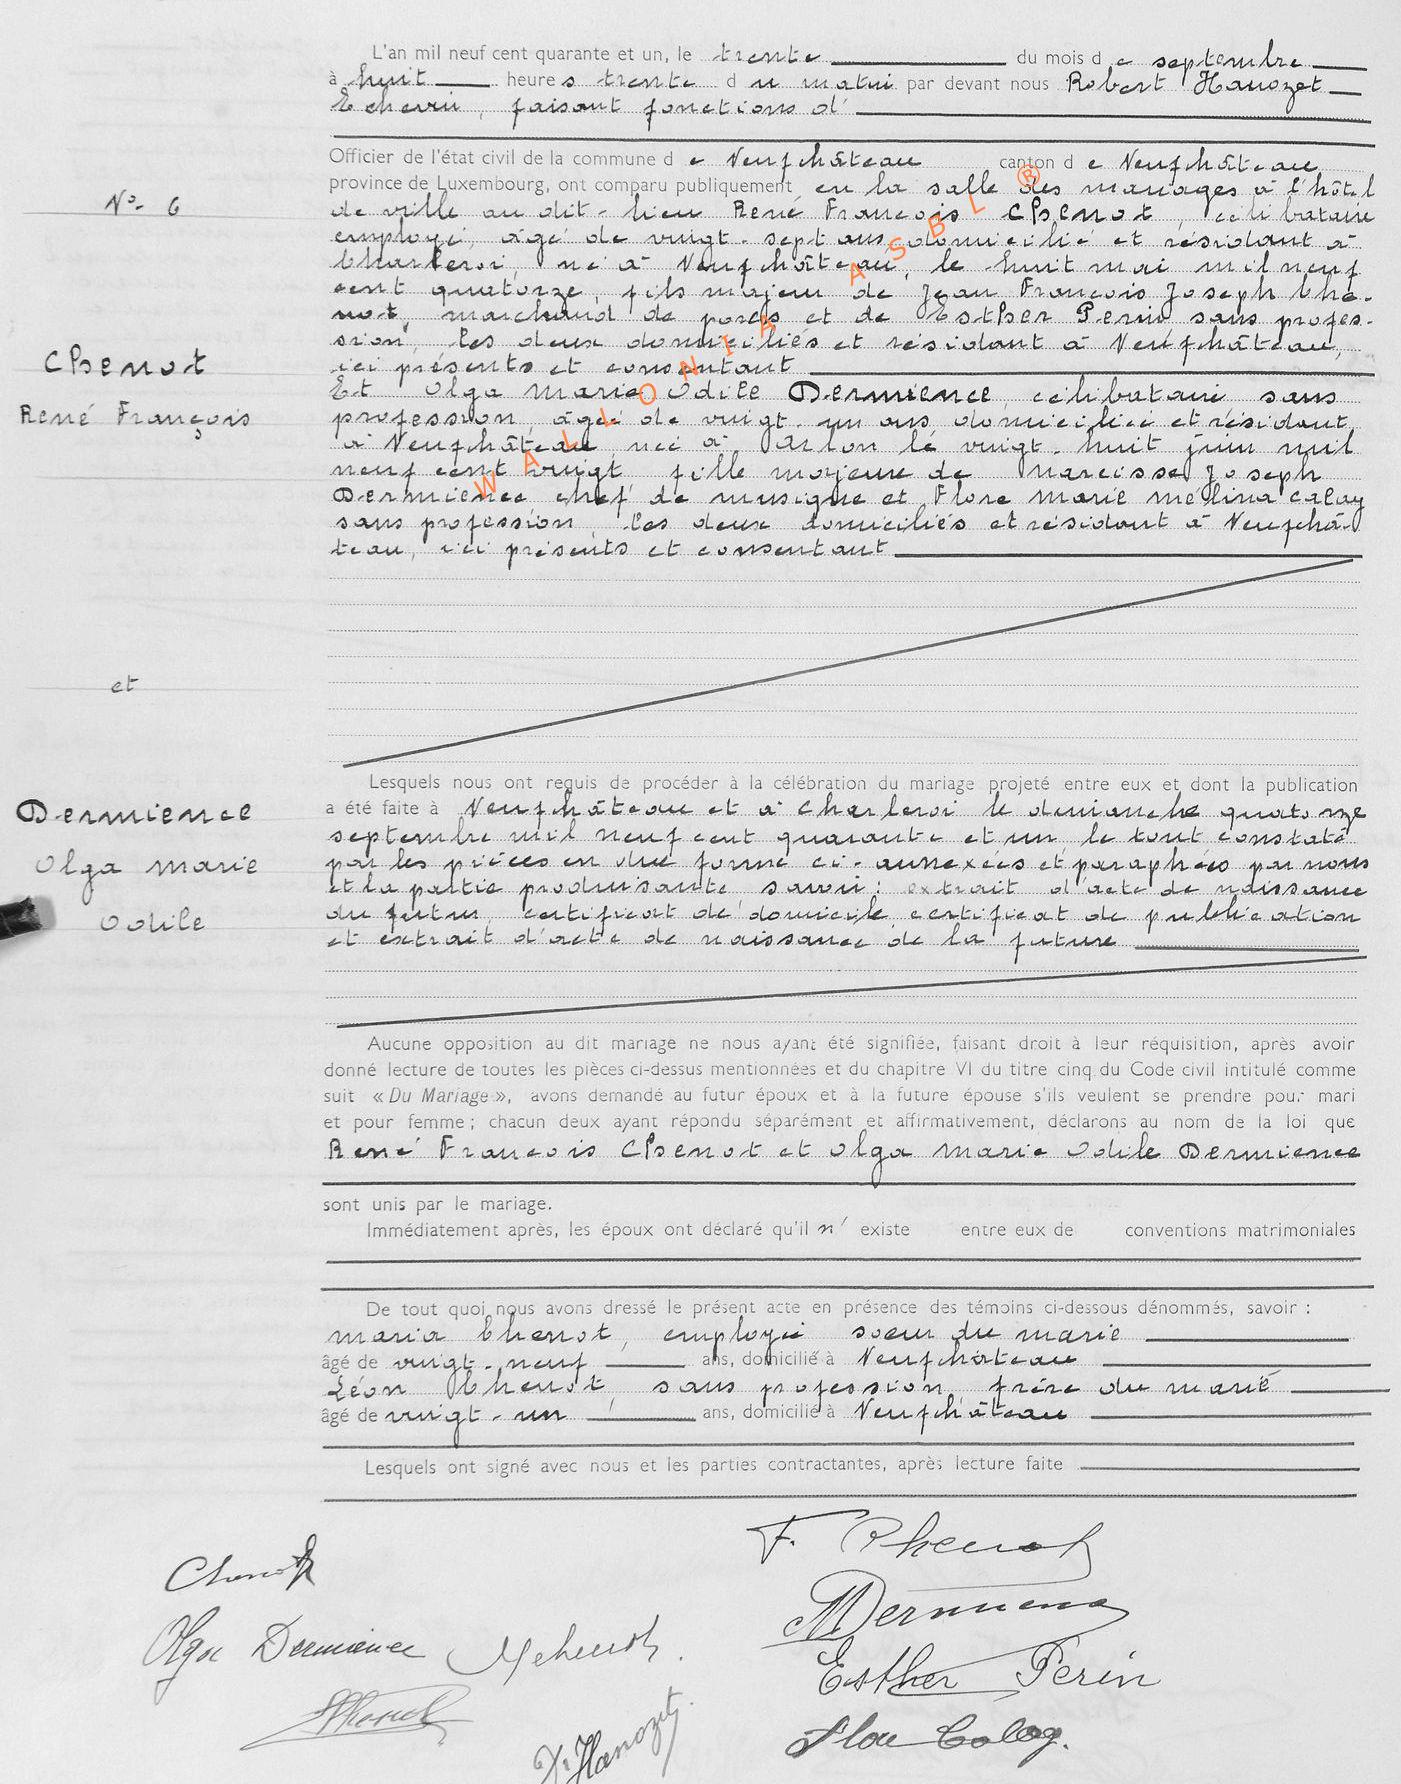 L'an mil neuf cent quarante et un, le trente du mois de septembre
à huit heures trente du matin par devant nous Robert Hanozet
Echevin, faisant fonctions d'
Officier de l'état civil de la commune de Neufchâteau canton de Neufchâteau
province de Luxembourg, ont comparu publiquement en la salle des mariages à l'hôtel
N° 6
de ville au dit-lieu René François Chenot, célibataire
employé, âgé de vingt-sept ans, domicilié et résidant à
Charleroi, né à Neufchâteau, le huit mai mil neuf
cent quatorze, fils majeur de Jean François Joseph Che-
not, marchand de porcs et de Esther Perin sans profes-
sion, les deux domiciliés et résidant à Neufchâteau,
ici présents et consentant
Chenot
René François
Et Olga Marie Odile Dermience, célibataire sans
profession, âgée de vingt-un ans, domiciliée et résidant
à Neufchâteau, née à Arlon le vingt-huit juin mil
neuf cent vingt, fille majeure de Narcisse Joseph
Dermience chef de musique et Flore Marie Mélina Calay
sans profession, les deux domiciliés et résidant à Neufchâ-
teau, ici présents et consentant
WALLONIA ASBL ®
et
Lesquels nous ont requis de procéder à la célébration du mariage projeté entre eux et dont la publication
a été faite à Neufchâteau et à Charleroi le dimanche quatorze
septembre mil neuf cent quarante et un, le tout constaté
par les pièces en due forme ci-annexées et paraphées par nous
et la partie produisante savoir: extrait d'acte de naissance
du futur, certificat de domicile certificat de publication
et extrait d'acte de naissance de la future
Dermience
Olga Marie
Odile
Aucune opposition au dit mariage ne nous ayant été signifiée, faisant droit à leur réquisition, après avoir
donné lecture de toutes les pièces ci-dessus mentionnées et du chapitre VI du titre cinq du Code civil intitulé comme
suit « Du Mariage », avons demandé au futur époux et à la future épouse s'ils veulent se prendre pour mari
et pour femme ; chacun deux ayant répondu séparément et affirmativement, déclarons au nom de la loi que
René François Chenot et Olga Marie Odile Dermience
sont unis par le mariage.
Immédiatement après, les époux ont déclaré qu'il n' existe entre eux de conventions matrimoniales
De tout quoi nous avons dressé le présent acte en présence des témoins ci-dessous dénommés, savoir :
Maria Chenot, employée soeur du marié
âgé de vingt-neuf ans, domicilié à Neufchâteau
Léon Chenot, sans profession, frère du marié
âgé de vingt-un ans, domicilié à Neufchâteau
Lesquels ont signé avec nous et les parties contractantes, après lecture faite
F. Chenot
Chenot
Dermience
Olga Dermience MChenot.
Esther Perin
LChenot
Flore Calay.
R. Hanozet.